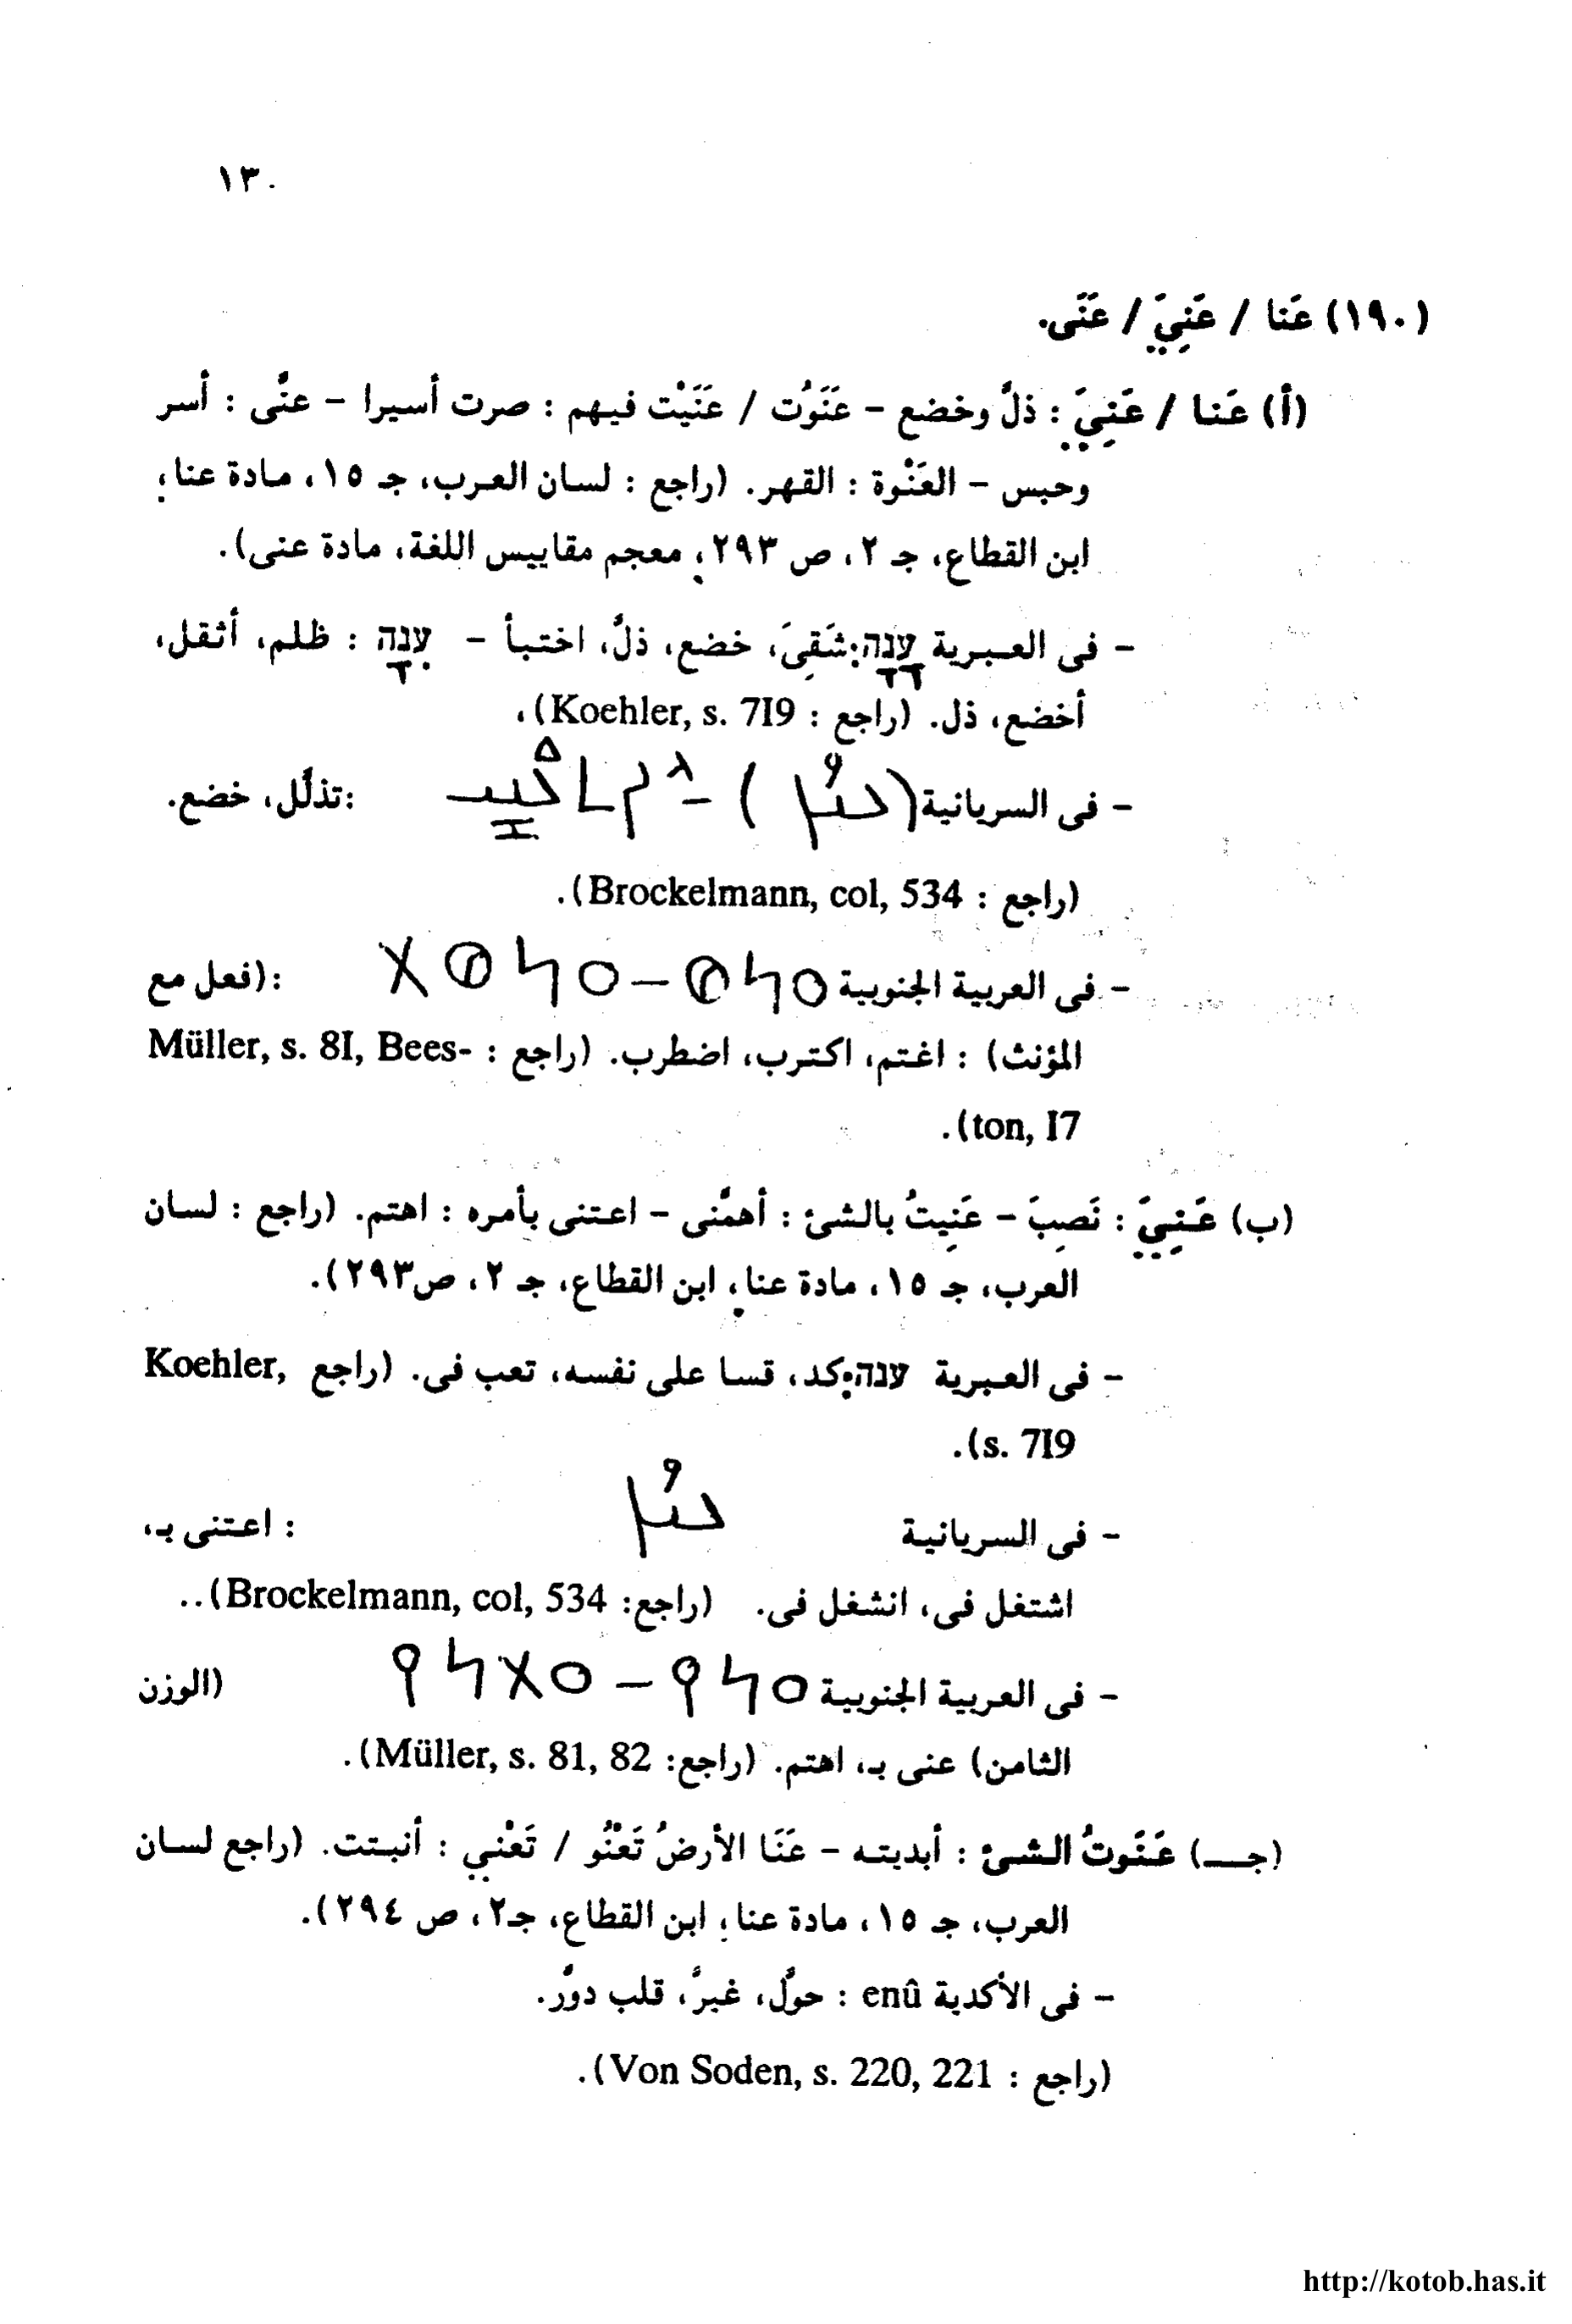 ١٣٠
(١٩٠) عَنا / عَنِيَ / عَنَّى.
(أ) عَنا / عَنِيَ : ذلّ وخضع – عَنَوْت / عَنَيْت فيهم : صرت أسيرا – عنَّى : أسر
وحبس – العَنْوة : القهر. (راجع : لسان العرب، جـ ١٥، مادة عنا؛
ابن القطاع، جـ ٢، ص ٢٩٣؛ معجم مقاييس اللغة، مادة عنى).
– فى العبرية עָנָה: شَقِىَ، خضع، ذلّ، اختبأ – עִנָה : ظلم، أثقل،
أخضع، ذل. (راجع : Koehler, s. 7I9)،
– فى السريانية ( ) – :تذلّل، خضع.
(راجع : Brockelmann, col, 534).
– فى العربية الجنوبية 𐩲𐩬𐩥 – 𐩲𐩬𐩥𐩩 :(فعل مع
المؤنث) : اغتم، اكترب، اضطرب. (راجع : Müller, s. 8I, Bees-
ton, I7).
(ب) عَنِيَ : نَصِبَ – عَنِيتُ بالشئ : أهمَّنى – اعتنى بأمره : اهتم. (راجع : لسان
العرب، جـ ١٥، مادة عنا؛ ابن القطاع، جـ ٢، ص٢٩٣).
– فى العبرية ענה: كد، قسا على نفسه، تعب فى. (راجع Koehler,
s. 7I9).
– فى السريانية ܥܢܳܐ : اعتنى بـ،
اشتغل فى، انشغل فى. (راجع: Brockelmann, col, 534)..
– فى العربية الجنوبية 𐩲𐩬𐩺 – 𐩲𐩩𐩬𐩺 (الوزن
الثامن) عنى بـ، اهتم. (راجع: Müller, s. 81, 82).
(جـ) عَنَوتُ الشئ : أبديته – عَنَا الأرضُ تَعْنُو / تَعْنيِ : أنبتت. (راجع لسان
العرب، جـ ١٥، مادة عنا؛ ابن القطاع، جـ٢، ص ٢٩٤).
– فى الأكدية enû : حوّل، غيرّ، قلب دوّر.
(راجع : Von Soden, s. 220, 221).
http://kotob.has.it